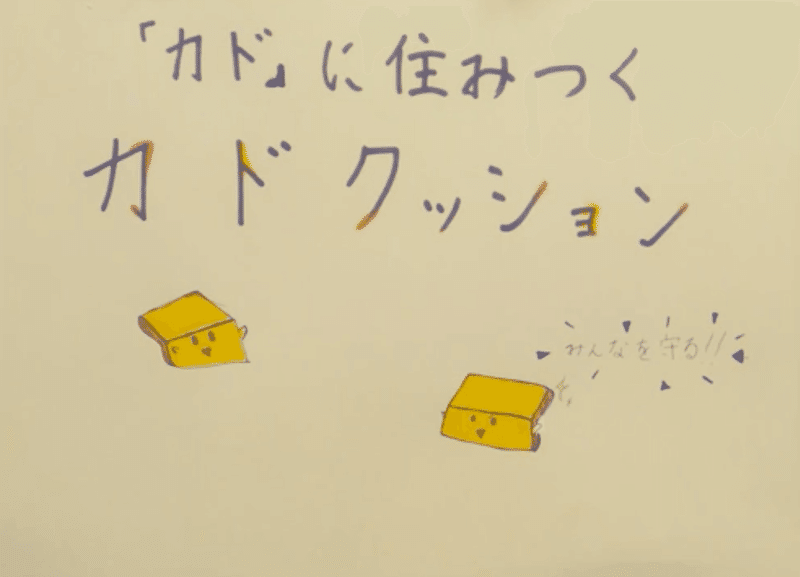 「カド」に住みつく
カドクッション
みんなを守る!!